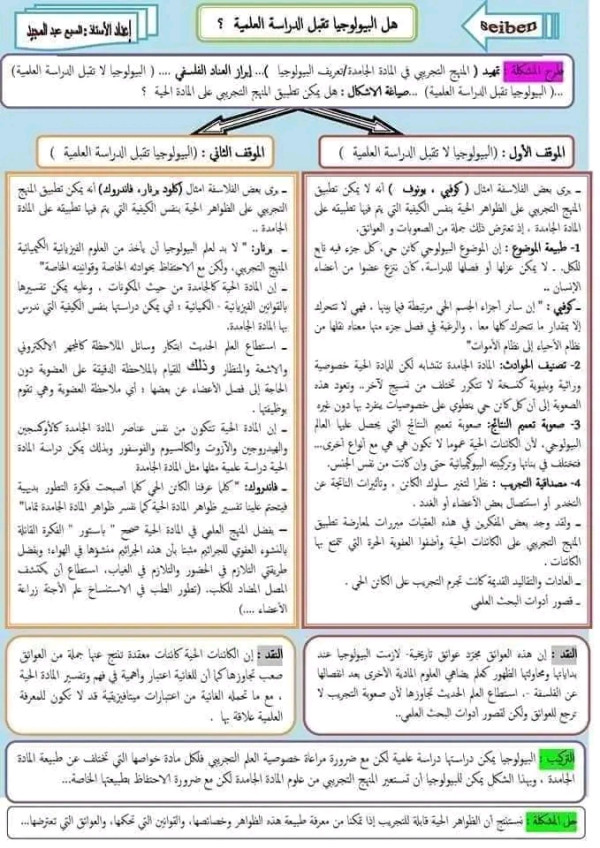 هل البيولوجيا تقبل الدراسة العلمية ؟
seiben
إعداد الأستاذ : السبع عبد المجيد
طرح المشكلة : تمهيد ( المنهج التجريبي في المادة الجامدة/تعريف البيولوجيا )... إبراز العناد الفلسفي .... ( البيولوجيا لا تقبل الدراسة العلمية)
...( البيولوجيا تقبل الدراسة العلمية) ...صياغة الاشكال : هل يمكن تطبيق المنهج التجريبي على المادة الحية ؟
الموقف الأول : (البيولوجيا لا تقبل الدراسة العلمية )
ـ يرى بعض الفلاسفة امثال ( كوفيي ، بونوف ) أنه لا يمكن تطبيق
المنهج التجريبي على الظواهر الحية بنفس الكيفية التي يتم فيها تطبيقه على
المادة الجامدة ، إذ تعترض ذلك جملة من الصعوبات و العوائق.
1- طبيعة الموضوع : إن الموضوع البيولوجي كائن حي، كل جزء فيه تابع
للكل. ـ لا يمكن عزلها أو فصلها للدراسة.كأن ننزع عضوا من أعضاء
الإنسان ..
ـ كوفيي : " إن سائر أجزاء الجسم الحي مرتبطة فيما بينها ، فهي لا تتحرك
إلا بمقدار ما تتحرك كلها معا ، والرغبة في فصل جزء منها معناه نقلها من
نظام الأحياء إلى نظام الأموات"
2- تصنيف الحوادث: المادة الجامدة تتشابه لكن للمادة الحية خصوصية
وراثية وبنيوية كنسخة لا تتكرر تختلف من نسيج لآخر.. وتعود هذه
الصعوبة إلى أن كل كائن حي ينطوي على خصوصيات ينفرد بها دون غيره
3- صعوبة تعميم النتائج: صعوبة تعميم النتائج التي يحصل عليها العالم
البيولوجي، لأن الكائنات الحية عموما لا تكون هي هي مع أنواع أخرى...
فتختلف في بنائها وتركيبته البيوكيميائية حتى وإن كانت من نفس الجنس.
4- مصداقية التجريب : نظرا لتغير سلوك الكائن ، وتأثيرات الناتجة عن
التخدير أو استئصال بعض الأعضاء أو الغدد .
ـ ولقد وجد بعض المفكرين في هذه العقبات مبررات لمعارضة تطبيق
المنهج التجريبي على الكائنات الحية وأضفوا العفوية الحرة التي تتمتع بها
الكائنات .
ـ العادات والتقاليد القديمة كانت تجرم التجريب على الكائن الحي .
ـ قصور أدوات البحث العلمي
النقد : إن هذه العوائق مجرّد عوائق تاريخية- لازمت البيولوجيا عند
بداياتها ومحاولتها الظهور كعلم يضاهي العلوم المادية الأخرى بعد انفصالها
عن الفلسفة -. استطاع العلم الحديث تجاوزها لأن صعوبة التجريب لا
ترجع للعوائق ولكن لقصور أدوات البحث العلمي..
الموقف الثاني : (البيولوجيا تقبل الدراسة العلمية )
ـ يرى بعض الفلاسفة امثال (كلود برنار، فاندروك) أنه يمكن تطبيق المنهج
التجريبي على الظواهر الحية بنفس الكيفية التي يتم فيها تطبيقه على المادة
الجامدة ..
ـ برنار: " لا بد لعلم البيولوجيا أن يأخذ من العلوم الفيزيائية الكيميائية
المنهج التجريبي، ولكن مع الاحتفاظ بحوادثه الخاصة وقوانينه الخاصة"
ـ إن المادة الحية كالجامدة من حيث المكونات ، وعليه يمكن تفسيرها
بالقوانين الفيزيائية - الكميائية ؛ أي يمكن دراستها بنفس الكيفية التي ندرس
بها المادة الجامدة.
ـ استطاع العلم الحديث ابتكار وسائل الملاحظة كالمجهر الالكتروني
والاشعة والمنظار وذلك للقيام بالملاحظة الدقيقة على العضوية دون
الحاجة إلى فصل الأعضاء عن بعضها ؛ أي ملاحظة العضوية وهي تقوم
بوظيفتها .
ـ إن المادة الحية تتكون من نفس عناصر المادة الجامدة كالأوكسجين
والهيدروجين والآزوت والكالسيوم والفوسفور وبذلك يمكن دراسة المادة
الحية دراسة علمية مثلها مثل المادة الجامدة
ـ فاندروك: "كلما عرفنا الكائن الحي كلما أصبحت فكرة التطور بديهية
فيتحتم علينا تفسير ظواهر المادة الحية كما نفسر ظواهر المادة الجامدة تماما"
– بفضل المنهج العلمي في المادة الحية صحح " باستور " الفكرة القائلة
بالنشوء العفوي للجراثيم مثبتا بأن هذه الجراثيم منشؤها في الهواء؛ وبفضل
طريقتي التلازم في الحضور والتلازم في الغياب، استطاع أن يكتشف
المصل المضاد للكلب. (تطور الطب في الاستنساخ علم الأجنة زراعة
الأعضاء ....)
النقد : إن الكائنات الحية كائنات معقدة تنتج عنها جملة من العوائق
صعب تجاوزها كما أن للغائية اعتبار واهمية في فهم وتفسير المادة الحية
، مع ما تحمله الغائية من اعتبارات ميتافيزيقية قد لا تكون للمعرفة
العلمية علاقة بها .
التركيب : البيولوجيا يمكن دراستها دراسة علمية لكن مع ضرورة مراعاة خصوصية العلم التجريبي فلكل مادة خواصها التي تختلف عن طبيعة المادة
الجامدة ، وبهذا الشكل يمكن للبيولوجيا أن تستعير المنهج التجريبي من علوم المادة الجامدة لكن مع ضرورة الاحتفاظ بطبيعتها الخاصة...
حل المشكلة : نستنتج أن الظواهر الحية قابلة للتجريب إذا تمكنا من معرفة طبيعة هذه الظواهر وخصائصها، والقوانين التي تحكمها، والعوائق التي تعترضها...